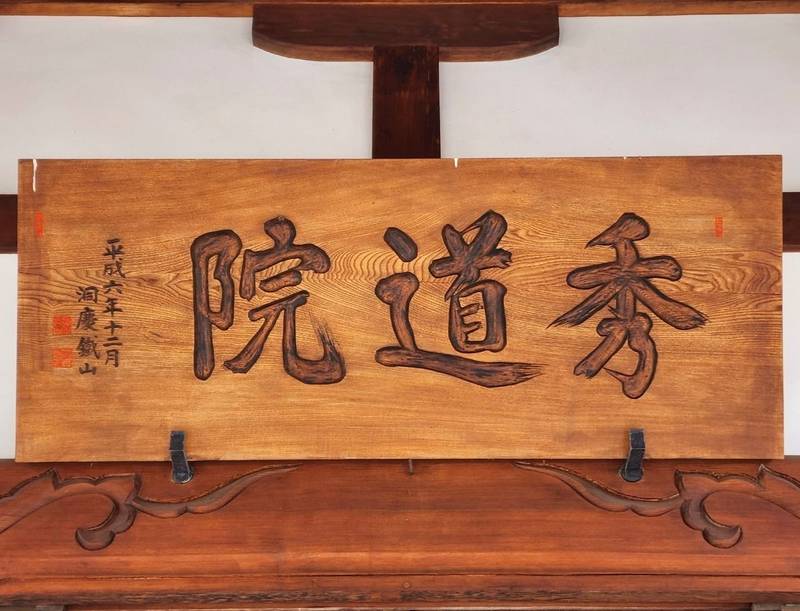 秀道院
平成六年十二月
洞慶鐵山